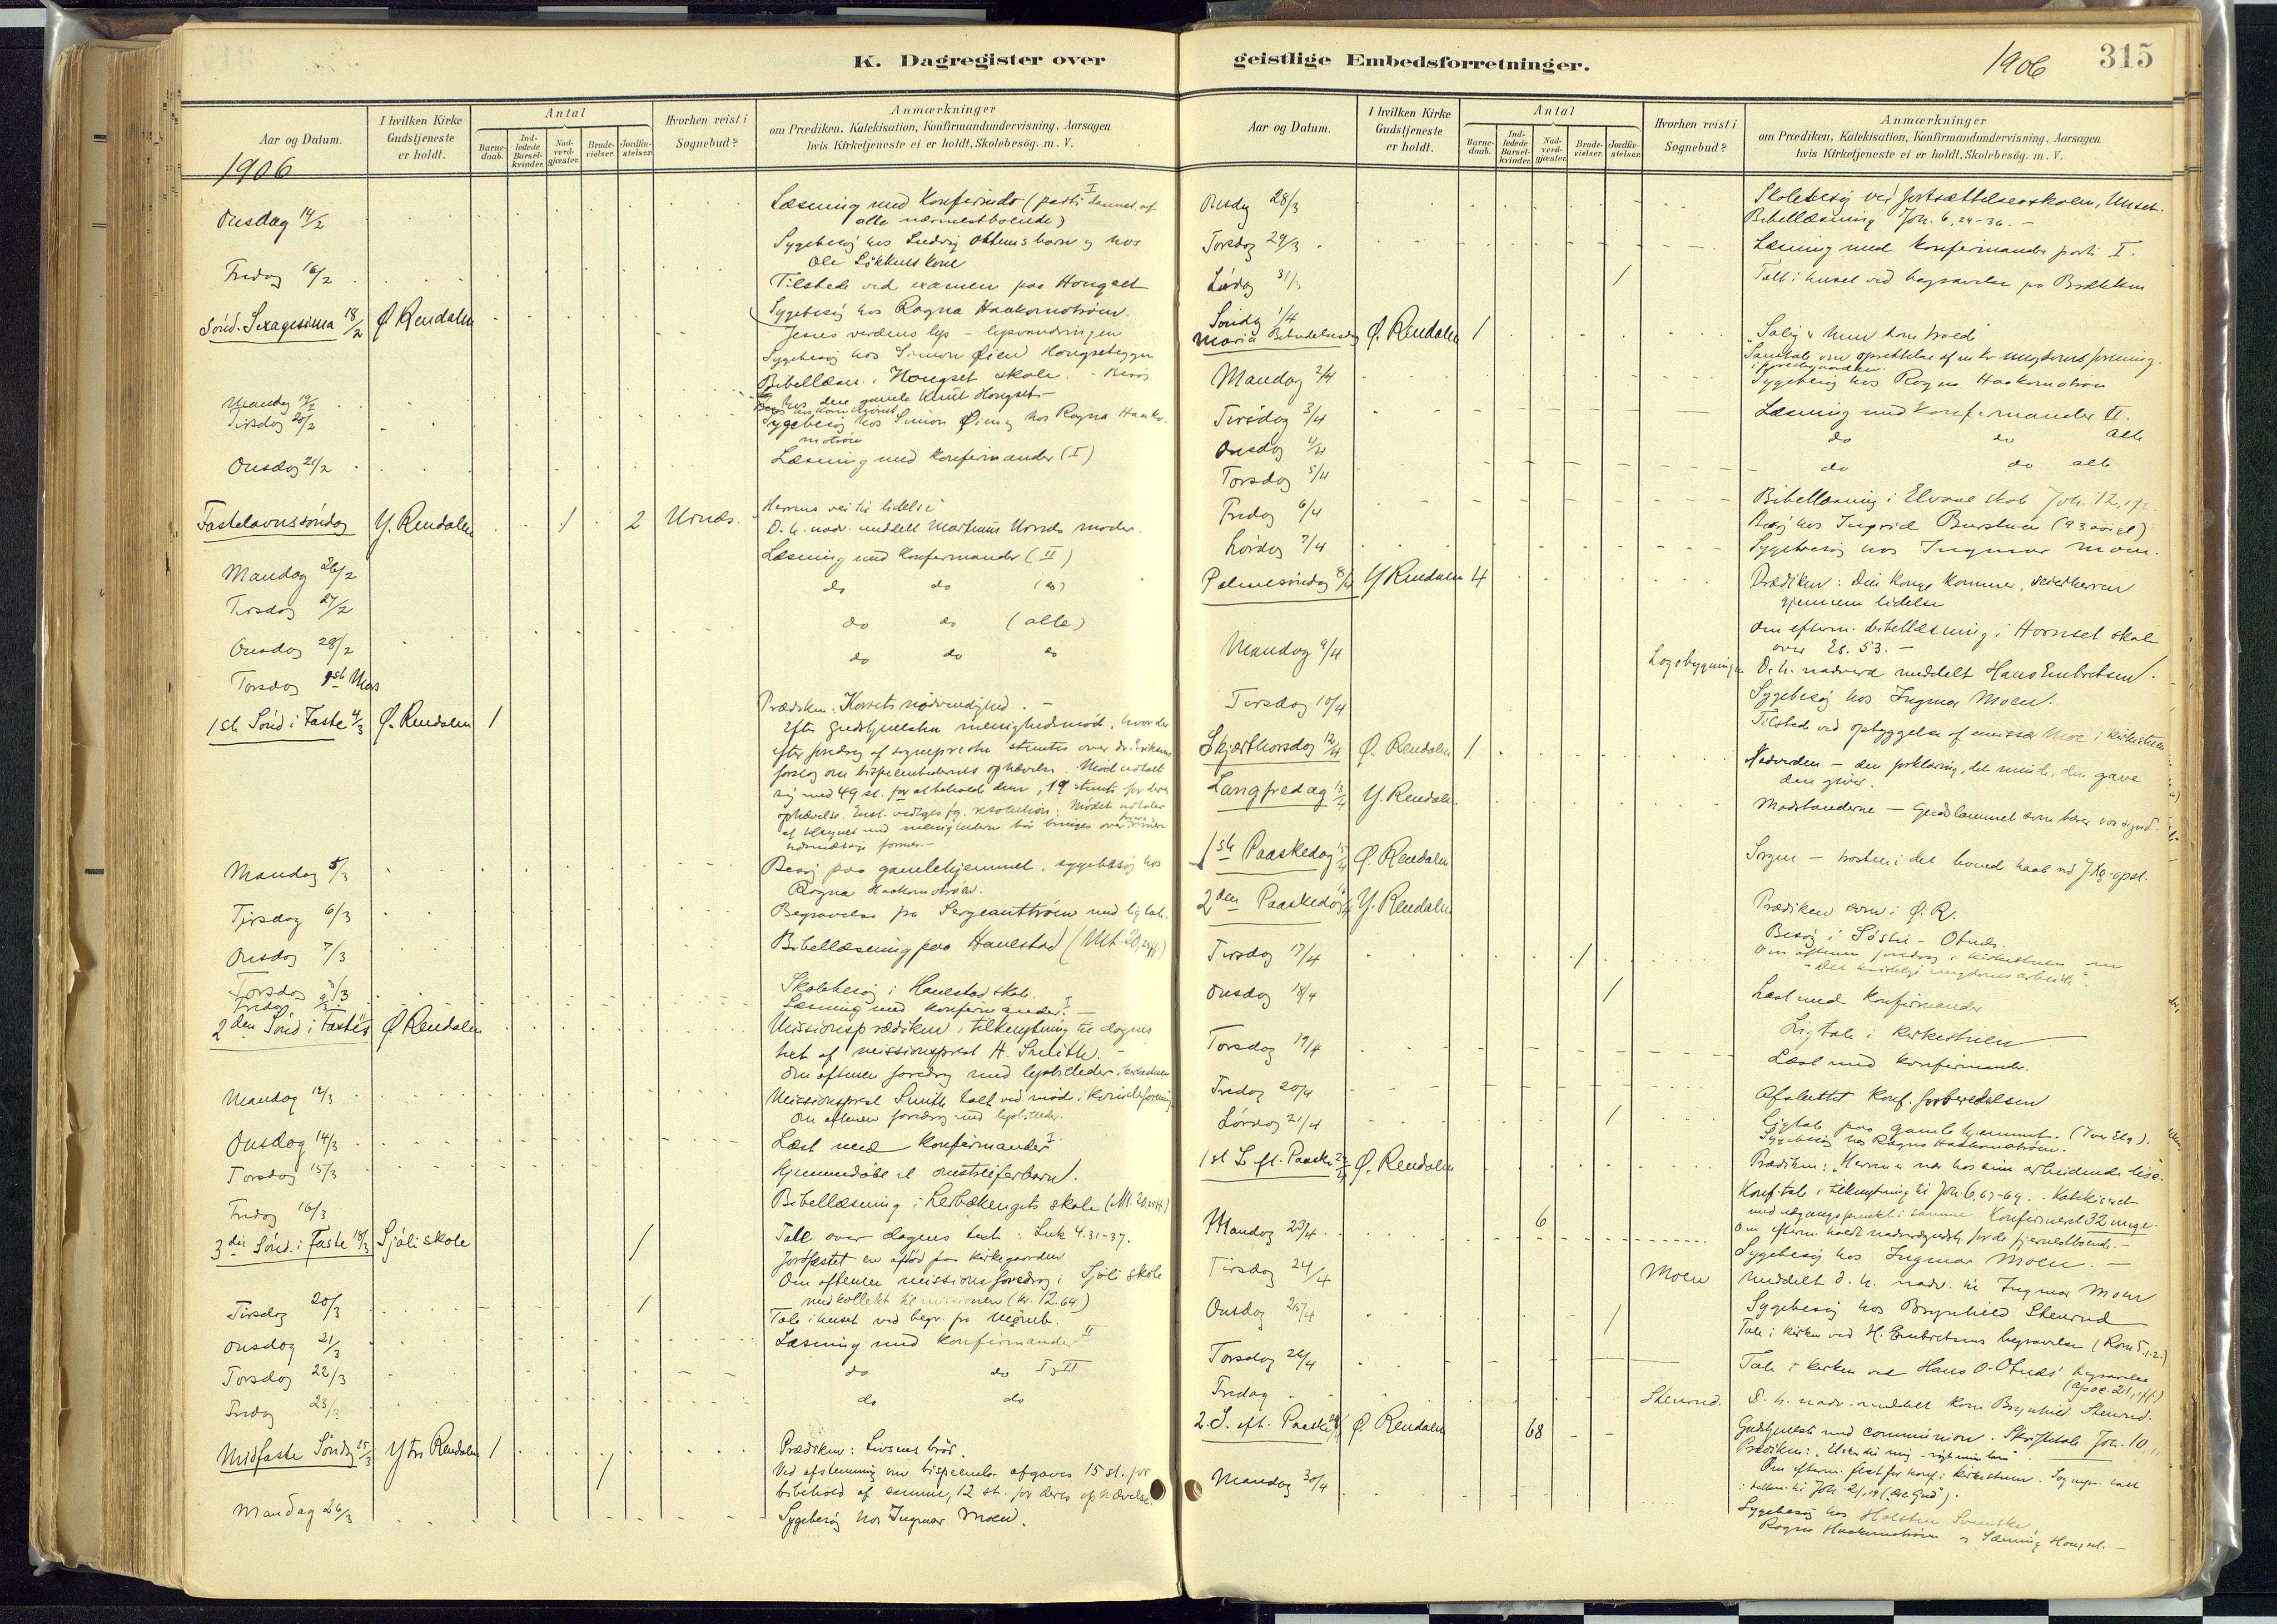 K. Dagregister over
Aar og Datum.
I hvilken Kirke Gudstjeneste er holdt.
Antal
Barne-daab.
Ind-ledede Barsel-kvinder.
Nad-verd-gjæster.
Brude-vielser.
Jordfæ-stelser.
Hvorhen reist i Sognebud?
Anmærkninger
om Prædiken, Katekisation, Konfirmandundervisning, Aarsagen
hvis Kirketjeneste ei er holdt, Skolebesøg. m. V.
1906
Onsdag 14/2 Læsning med Konfirmander (parti I
alle nærmestboende)
Sygebesøg hos Ludvig barn og hos
Ole kone
Fredag 16/2 Tilstede ved examen paa Hongset
Sygebesøg hos Ragna Haakonstrøen.
Sönd. Sexagesima 18/2 Ø Rendalen Jesus verdens lys
Sygebesøg hos Simon Øien Hongseteggen
Bibellæsn. i Hongset skole. - Besøg
hos den gamle Knut Hongset
Mandag 19/2
Tirsdag 20/2 Sygebesøg hos Simon Øien og hos Ragna Haakon-
strøen
Onsdag 21/2 Læsning med Konfirmander (I)
Fastelavnssöndag Y. Rendalen 1 2 Urnæs. Herrens vei til lidelse
D. h. nadv. meddelt Martinus Urnæs moder.
Mandag 26/2 Læsning med Konfirmander (II)
Tirsdag 27/2 do do (do)
Onsdag 28/2 do do (alle)
Torsdag 1st Mars do do do
1ste Sönd i Faste 4/3 Ø. Rendalen 1 Prædiken: Korsets nødvendighed. -
Efter gudstjenesten menighedsmöde, hvor der
efter foredrag af sogneprest stemtes over dr. Eriksens
forslag om bispeembedernes ophævelse. Mödet udtalte
sig med 49 st. for at beholde dem, 19 stemte for deres
ophævelse.
Mandag 5/3 Besøg paa gamlehjemmet, sygebesøg hos
Ragna Haakonstrøen.
Tirsdag 6/3 Begravelse paa Sergeantstrøen med ligtale.
Onsdag 7/3 Bibellæsning paa Hanestad (Mt. 20,25ff)
Torsdag 8/3 Skolebesøg i Hanestad skole.
Fredag 9/3 Læsning med konfirmander. I
2den Sönd i Faste 11/3 Ø Rendalen Missionsprædiken i tilknytning til dagens
text af missionsprest H. Smith. -
Om aftenen foredrag med lysbilleder i kirkestuen
Mandag 12/3 Missionsprest Smith talt ved möde i kvindeforening
Om aftenen foredrag med lysbilleder.
Onsdag 14/3 Læst med konfirmander I
Torsdag 15/3 Hjemmedøbt et barn.
Fredag 16/3 Bibellæsning i skole (Mt. 20,25ff)
3die Sönd. i Faste 18/3 Sjöli skole 1 Tale over dagens text: Luk 4.31-37.
Jordfæstet en paa kirkegaarden
Om aftenen missionsforedrag i Sjöli skole
med kollekt til missionen (kr. 12.64)
Tirsdag 20/3 1 Tale i huset ved begr. paa
Onsdag 21/3 Læsning med konfirmander II
Torsdag 22/3 do do I, II
Fredag 23/3 do do
Midfaste Söndag 25/3 Ytre Rendalen 1 1 Prædiken: Livsens bröd.
Ved afstemning om bispeemb. afgaves 15 st. for
bibehold af samme, 12 st. for deres ophævelse.
Mandag 26/3 Sygebesøg hos Ingmar Moen.
geistlige Embedsforretninger.
1906
315
Aar og Datum.
I hvilken Kirke Gudstjeneste er holdt.
Antal
Barne-daab.
Ind-ledede Barsel-kvinder.
Nad-verd-gjæster.
Brude-vielser.
Jordfæ-stelser.
Hvorhen reist i Sognebud?
Anmærkninger
om Prædiken, Katekisation, Konfirmandundervisning, Aarsagen
hvis Kirketjeneste ei er holdt, Skolebesøg. m. V.
Onsdag 28/3 Skolebesøg ved fortsættelsesskolen, Unset.
Bibellæsning Joh. 6, 24-36. -
Torsdag 29/3 Læsning med konfirmander parti I.
Lördag 31/3 1 Tale i huset ved begravelse paa
Söndag 1/4
Mariæ Bebudelsesdag Ø. Rendalen 1 "Salig er hun som trode"
Samtale om oprettelse af en kr. ungdomsforening.
Mandag 2/4 Sygebesøg hos Ragna Haakonstrøen
Tirsdag 3/4 Læsning med konfirmander II.
Onsdag 4/4 do do alle
Torsdag 5/4 do do alle
Fredag 6/4 Bibellæsning i Elvaal skole Joh. 12,
Besøg hos Ingrid (93 aar gl)
Lördag 7/4 Sygebesøg hos Ingmar Moen.
Palmesöndag 8/4 Y Rendalen 4 Prædiken: Din konge kommer, seierherren
gjennem lidelse
Om efterm. bibellæsning i Hornset skole
over Es. 53. -
Mandag 9/4 Logebygningen D. h. nadverd meddelt Hans Embretsen.
Tirsdag 10/4 Sygebesøg hos Ingmar Moen.
Tilstede ved opbyggelse af emissær Moe i kirkestuen
Skjærthorsdag 12/4 Ø. Rendalen 1 Nadverden - den forklaring, det minde, den gave
den giver.
Langfredag 13/4 Y. Rendalen. Modstanderne - Gudslammet som bærer vor synd.
1ste Paaskedag 15/4 Ø. Rendalen Sorgen - trösten i det levende haab ved J. Kr. opst.
2den Paaskedag Y. Rendalen Prædiken som i Ø. R.
Tirsdag 17/4 1 Besøg i - Otnæs.
Om aftenen foredrag i kirkestuen om
"Det kristelige ungdomsarbeide".
Onsdag 18/4 1 Læst med konfirmander
Ligtale i kirkestuen
Torsdag 19/4 Læst med konfirmander.
Fredag 20/4 Afsluttet konf. forberedelsen
Lördag 21/4 1 Ligtale paa gamlehjemmet.
Sygebesøg hos Ragna Haakonstrøen.
1st S. eft. Paaske 22/4 Ø. Rendalen Prædiken: "Herren er nær hos sine arbeidende"
Konf.tale i tilknytning til Joh. 6, 67-69. Katekiseret
med udgangspunkt i samme. Konfirmeret 32 unge.
Mandag 23/4 6 Om efterm. holdt nadverdgudstj. for de fjernestboende. -
Sygebesøg hos Ingmar Moen. -
Tirsdag 24/4 Moen Meddelt d. h. nadv. til Ingmar Moen
Onsdag 25/4 1 Sygebesøg hos Brynhild Stenrud
Tale i kirken ved H. Embretsens begravelse (Rom 5.1-2.)
Torsdag 26/4 Tale i kirken ved Hans O. Otnæs' begravelse
(Apoc. 21,1ff)
Fredag Stenrud. D. h. nadv. meddelt kone Brynhild Stenrud.
2. S. eft. Paaske 29/4 Ø. Rendalen 68 Gudstjeneste med communion. Skriftetale Joh. 10, 11
Prædiken: "Elsker du mig - røgt mine lam".
Om efterm. fest for konf. i kirkestuen. Sognepr. talt
i tilkn. til Joh 21,19
Mandag 30/4 Sygebesøg hos Holsten Svenske
Ragna Haakonstrøen og Hongset. -